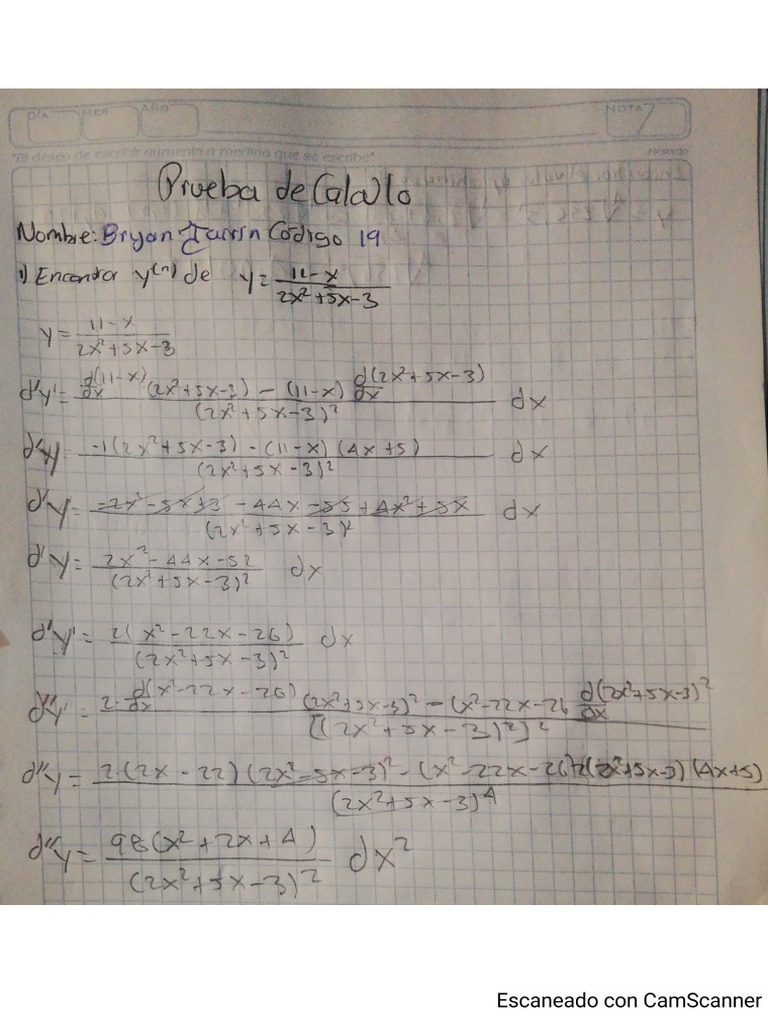 DÍA MES AÑO NOTA
"El deseo de escribir aumenta a medida que se escribe"
Prueba de Calculo
Nombre: Bryan Codigo 19
1) Encontrar y^(n) de y = (11-x)/(2x²+5x-3)
y = (11-x)/(2x²+5x-3)
d'y' = (d(11-x)/dx (2x²+5x-3) - (11-x) d(2x²+5x-3)/dx)/(2x²+5x-3)² dx
d'y = (-1(2x²+5x-3) - (11-x)(4x+5))/(2x²+5x-3)² dx
d'y = (-2x²-5x+3 - 44x - 55 + 4x²+5x)/(2x²+5x-3)² dx
d'y = (2x²-44x-52)/(2x²+5x-3)² dx
d'y' = 2(x²-22x-26)/(2x²+5x-3)² dx
d''y' = (2·d(x²-22x-26)/dx (2x²+5x-3)² - (x²-22x-26 d(2x²+5x-3)²/dx)/[(2x²+5x-3)²]²
d''y = (2·(2x-22)(2x²-5x-3)² - (x²-22x-26)2(2x²+5x-3)(4x+5))/(2x²+5x-3)⁴
d''y = 98(x²+2x+4)/(2x²+5x-3)² dx²
Escaneado con CamScanner